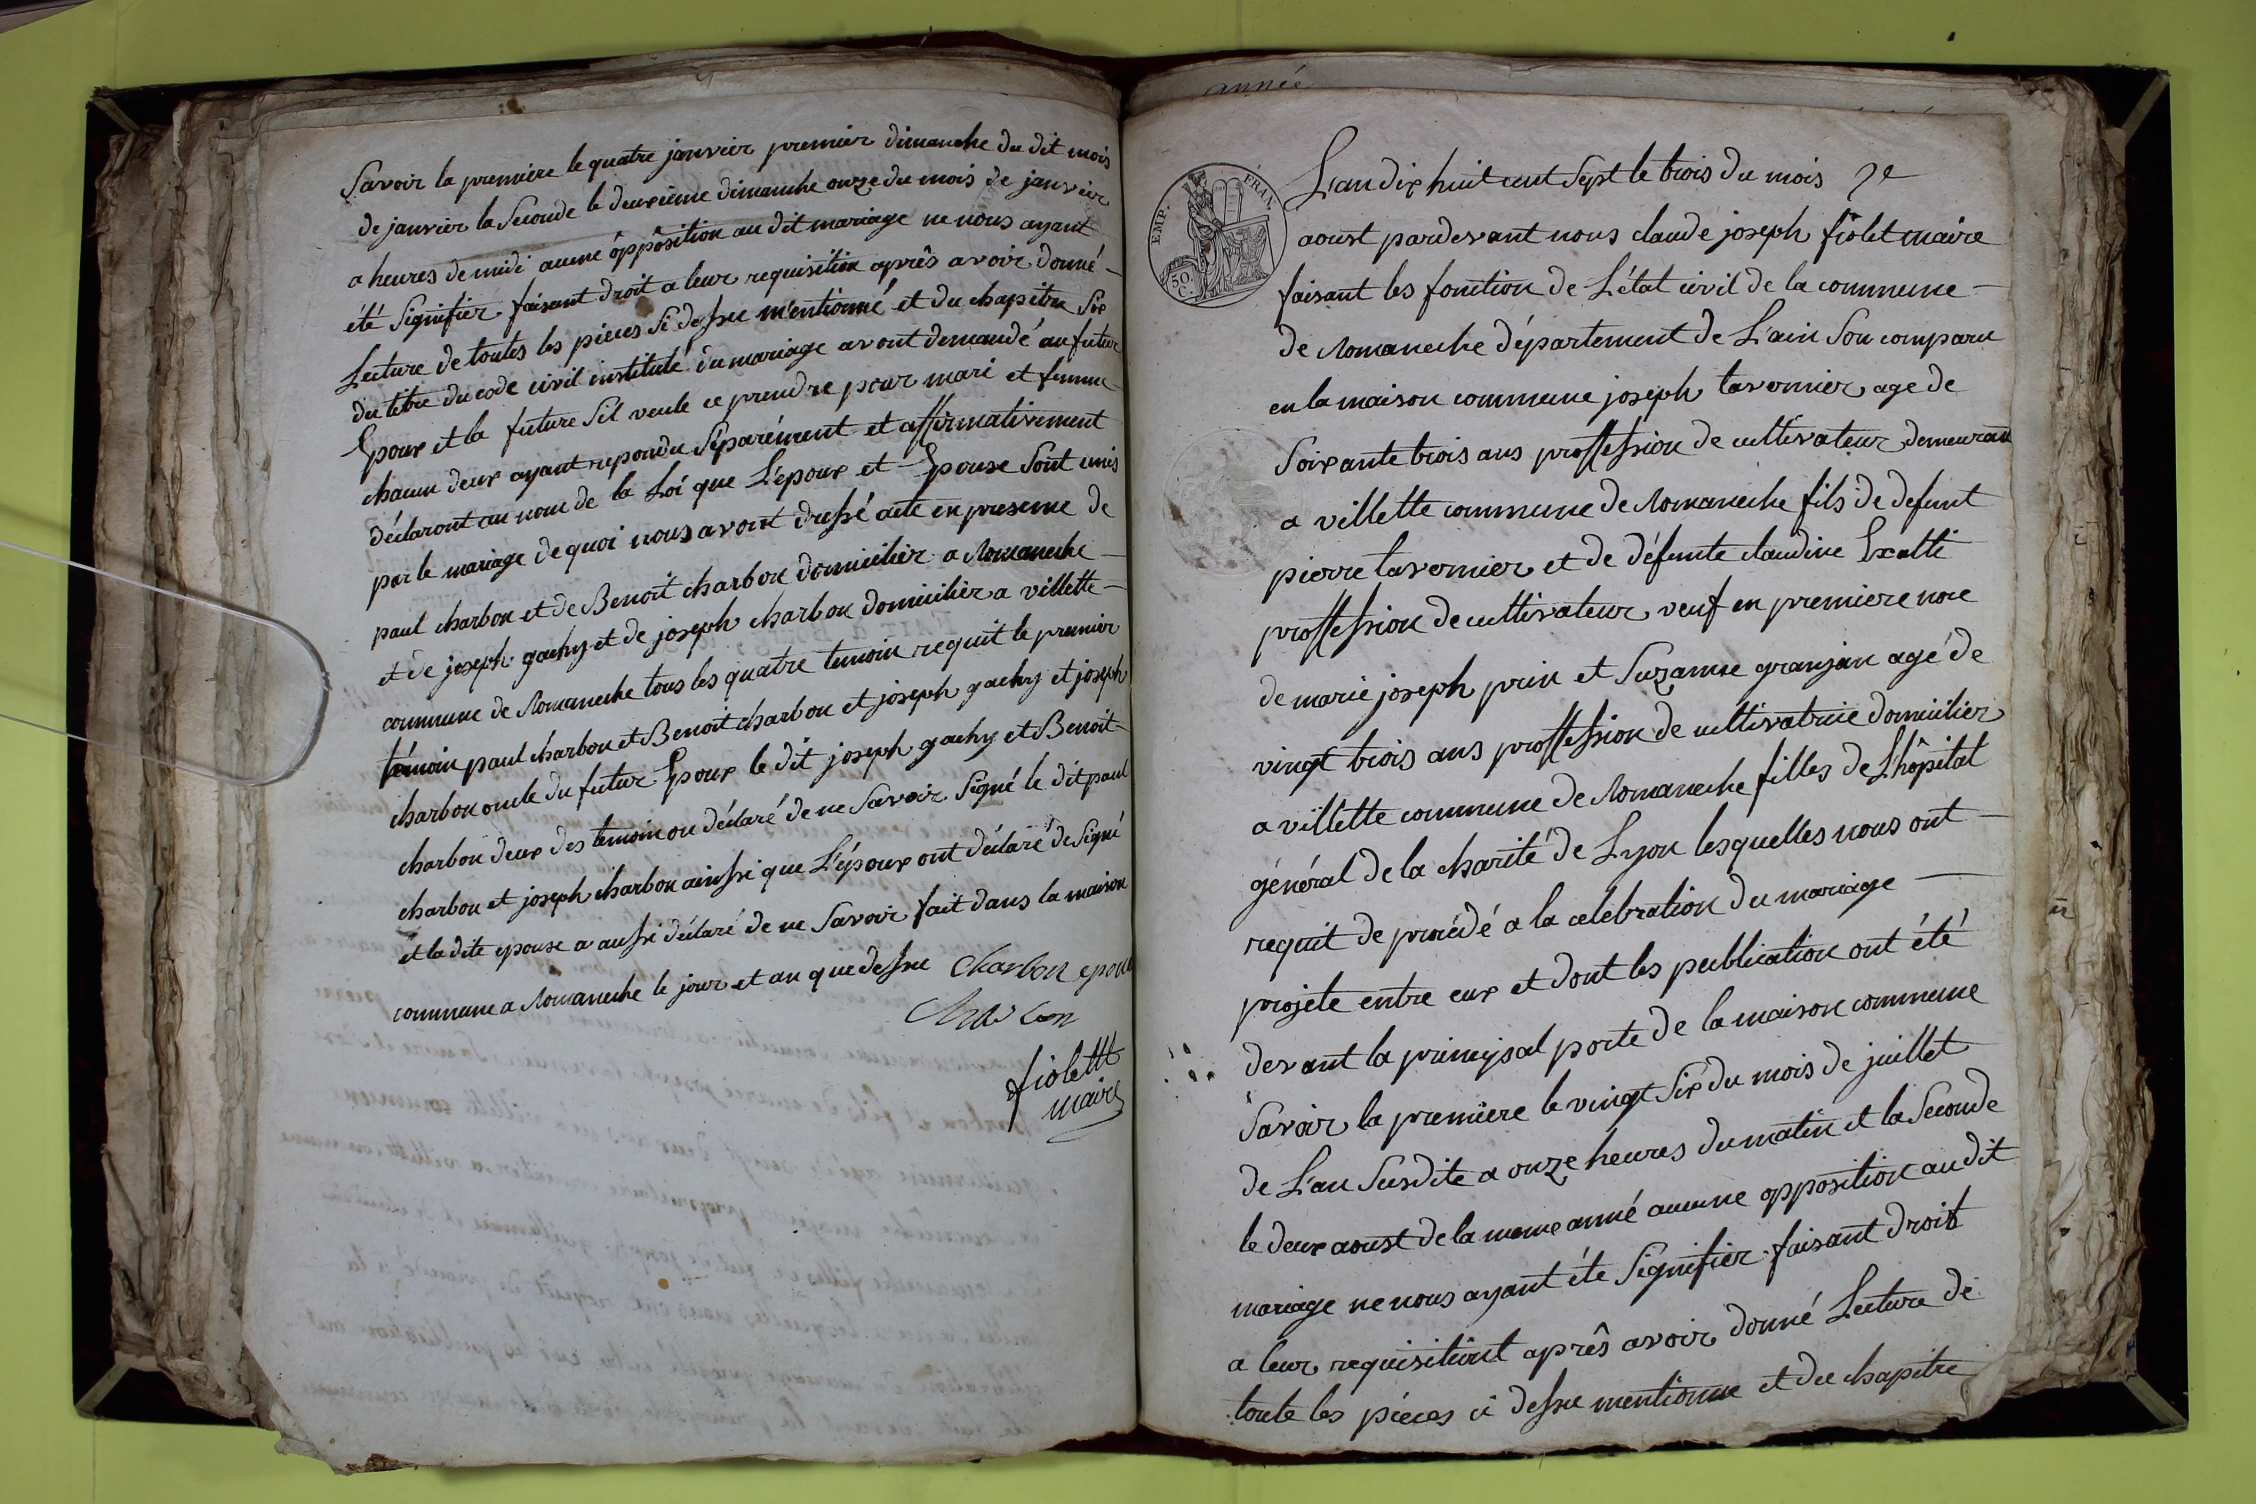 Savoir la premiere le quatre janvier premier dimanche du dit mois
de janvier la Seconde le deuxieme dimanche onze du mois de janvier
a heures de midi aucune oppôsition au dit mariage ne nous ayant
été Signifier faisant droit a leur requisition aprês avoir donné
Lecture de toutes les pieces Si dessu mentionné et du chapitre Six
du titre du code civil institulé du mariage avont demandé au futur
Epoux et la future Sil veule ce prendre pour mari et femme
chacun deux ayant repondu Séparément et affirmativement
déclaront au nom de la Loi que L'époux et Epouse Sont unis
par le mariage de quoi nous avont dressé acte en presence de
paul charbon et de Benoit charbon domicilier a Romaneche
et de joseph gachy et de joseph charbon domicilier a villette
commune de Romaneche tous les quatre temoin requit le premier
témoin paul charbon et Benoit charbon et joseph gachy et joseph
charbon oncle du futur Epoux le dit joseph gachy et Benoit
charbon deux des temoin on déclaré de ne Savoir Signé le dit paul
charbon et joseph charbon ainssi que L'époux ont déclaré de Signé
et la dite epouse a aussi déclaré de ne Savoir fait dans la maison
commune a Romaneche le jour et an que dessu charbon epoux
Charbon
fiolettt
maire
année
EMP. FRAN.
50 C.
L'an dix huit cent Sept le trois du mois
aoust pardevant nous claude joseph fiolet maire
faisant les fonction de L'état civil de la commune
de Romaneche département de L'ain Son comparu
en la maison commune joseph tavernier age de
Soixante trois ans proffession de cultivateur demeuran
a villette commune de Romaneche fils de defunt
pierre tavernier et de défunte claudine
proffession de cultivateur veuf en premiere noce
de marie joseph prin et Suzanne granjan agé de
vingt trois ans proffession de cultivatrice domicilier
a villette commune de Romaneche filles de L'hôpital
général de la charité de Lyon lesquelles nous ont
requit de procédé a la celebration du mariage
projete entre eux et dont les publication ont été
devant la principal porte de la maison commune
Savoir la premiere le vingt Six du mois de juillet
de L'an Susdite a onze heures du matin et la Seconde
le deux aoust de la meme anné aucune opposition au dit
mariage ne nous ayant éte Signifier faisant droit
a leur requisitiont aprês avoir donné Lecture de
toute les piéces ci dessu mentionne et du chapitre